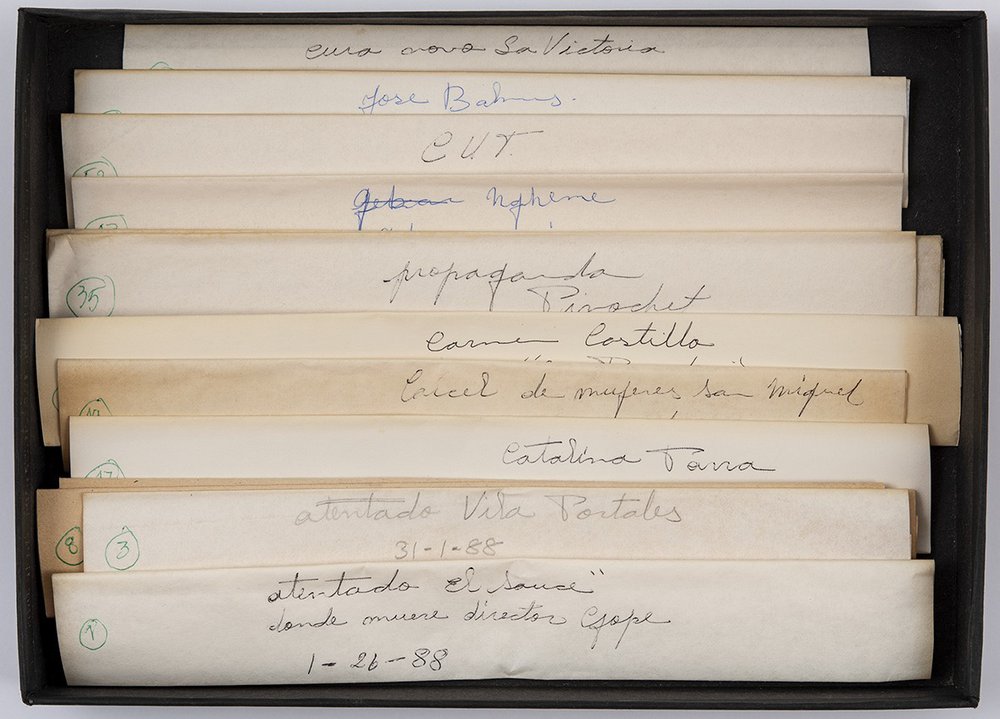 cura novo La Victoria
Jose Balmes.
C.U.T.
Nghene
35
propaganda
Pinochet
Carmen Castillo
Cárcel de mujeres San Miguel
17
Catalina Parra
8
3
atentado Villa Portales
31-1-88
1
atentado El Sauce"
donde muere director Gope
1-26-88